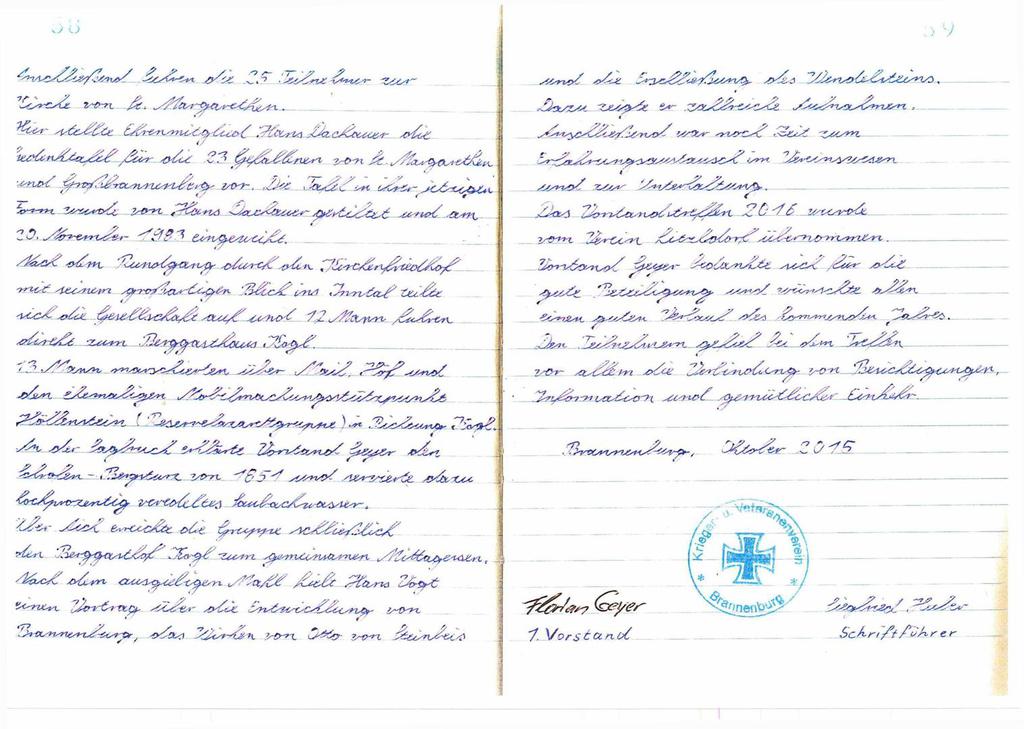 58
Anschließend fuhren die 25 Teilnehmer zur
Kirche von St. Margarethen.
Hier stellte Ehrenmitglied Hans Dachauer die
Gedenktafel für die 23 Gefallenen von St. Margarethen
und Großbrannenberg vor. Die Tafel in ihrer jetzigen
Form wurde von Hans Dachauer gestiftet und am
20. November 1983 eingeweiht.
Nach dem Rundgang durch den Kirchenfriedhof
mit seinem großartigen Blick ins Inntal teilte
sich die Gesellschaft auf und 12 Mann fuhren
direkt zum Berggasthaus Kogl.
13 Mann marschierten über Mail, Hof und
den ehemaligen Mobilmachungsstützpunkt
Höllenstein (Reservelazarettgruppe) in Richtung Kogl.
In der Sagbruch erklärte Vorstand Geyer den
Schrofen-Bergsturz von 1851 und servierte dazu
hochprozentig veredeltes Laubachwasser.
Über Aich erreichte die Gruppe schließlich
den Berggasthof Kogl zum gemeinsamen Mittagessen.
Nach dem ausgiebigen Mahl hielt Hans Vogt
einen Vortrag über die Entwicklung von
Brannenburg, das Wirken von Otto von Steinbeis
59
und die Erschließung des Wendelsteins.
Dazu zeigte er zahlreiche Aufnahmen.
Anschließend war noch Zeit zum
Erfahrungsaustausch im Vereinswesen
und zur Unterhaltung.
Das Vorstandstreffen 2016 wurde
vom Verein Litzldorf übernommen.
Vorstand Geyer bedankte sich für die
gute Beteiligung und wünschte allen
einen guten Verlauf des kommenden Jahres.
Den Teilnehmern gefiel bei dem Treffen
vor allem die Verbindung von Besichtigungen,
Information und gemütlicher Einkehr.
Brannenburg, Oktober 2015
Krieger- u. Veteranenverein
* Brannenburg *
Florian Geyer
1. Vorstand
Siegfried Huber
Schriftführer